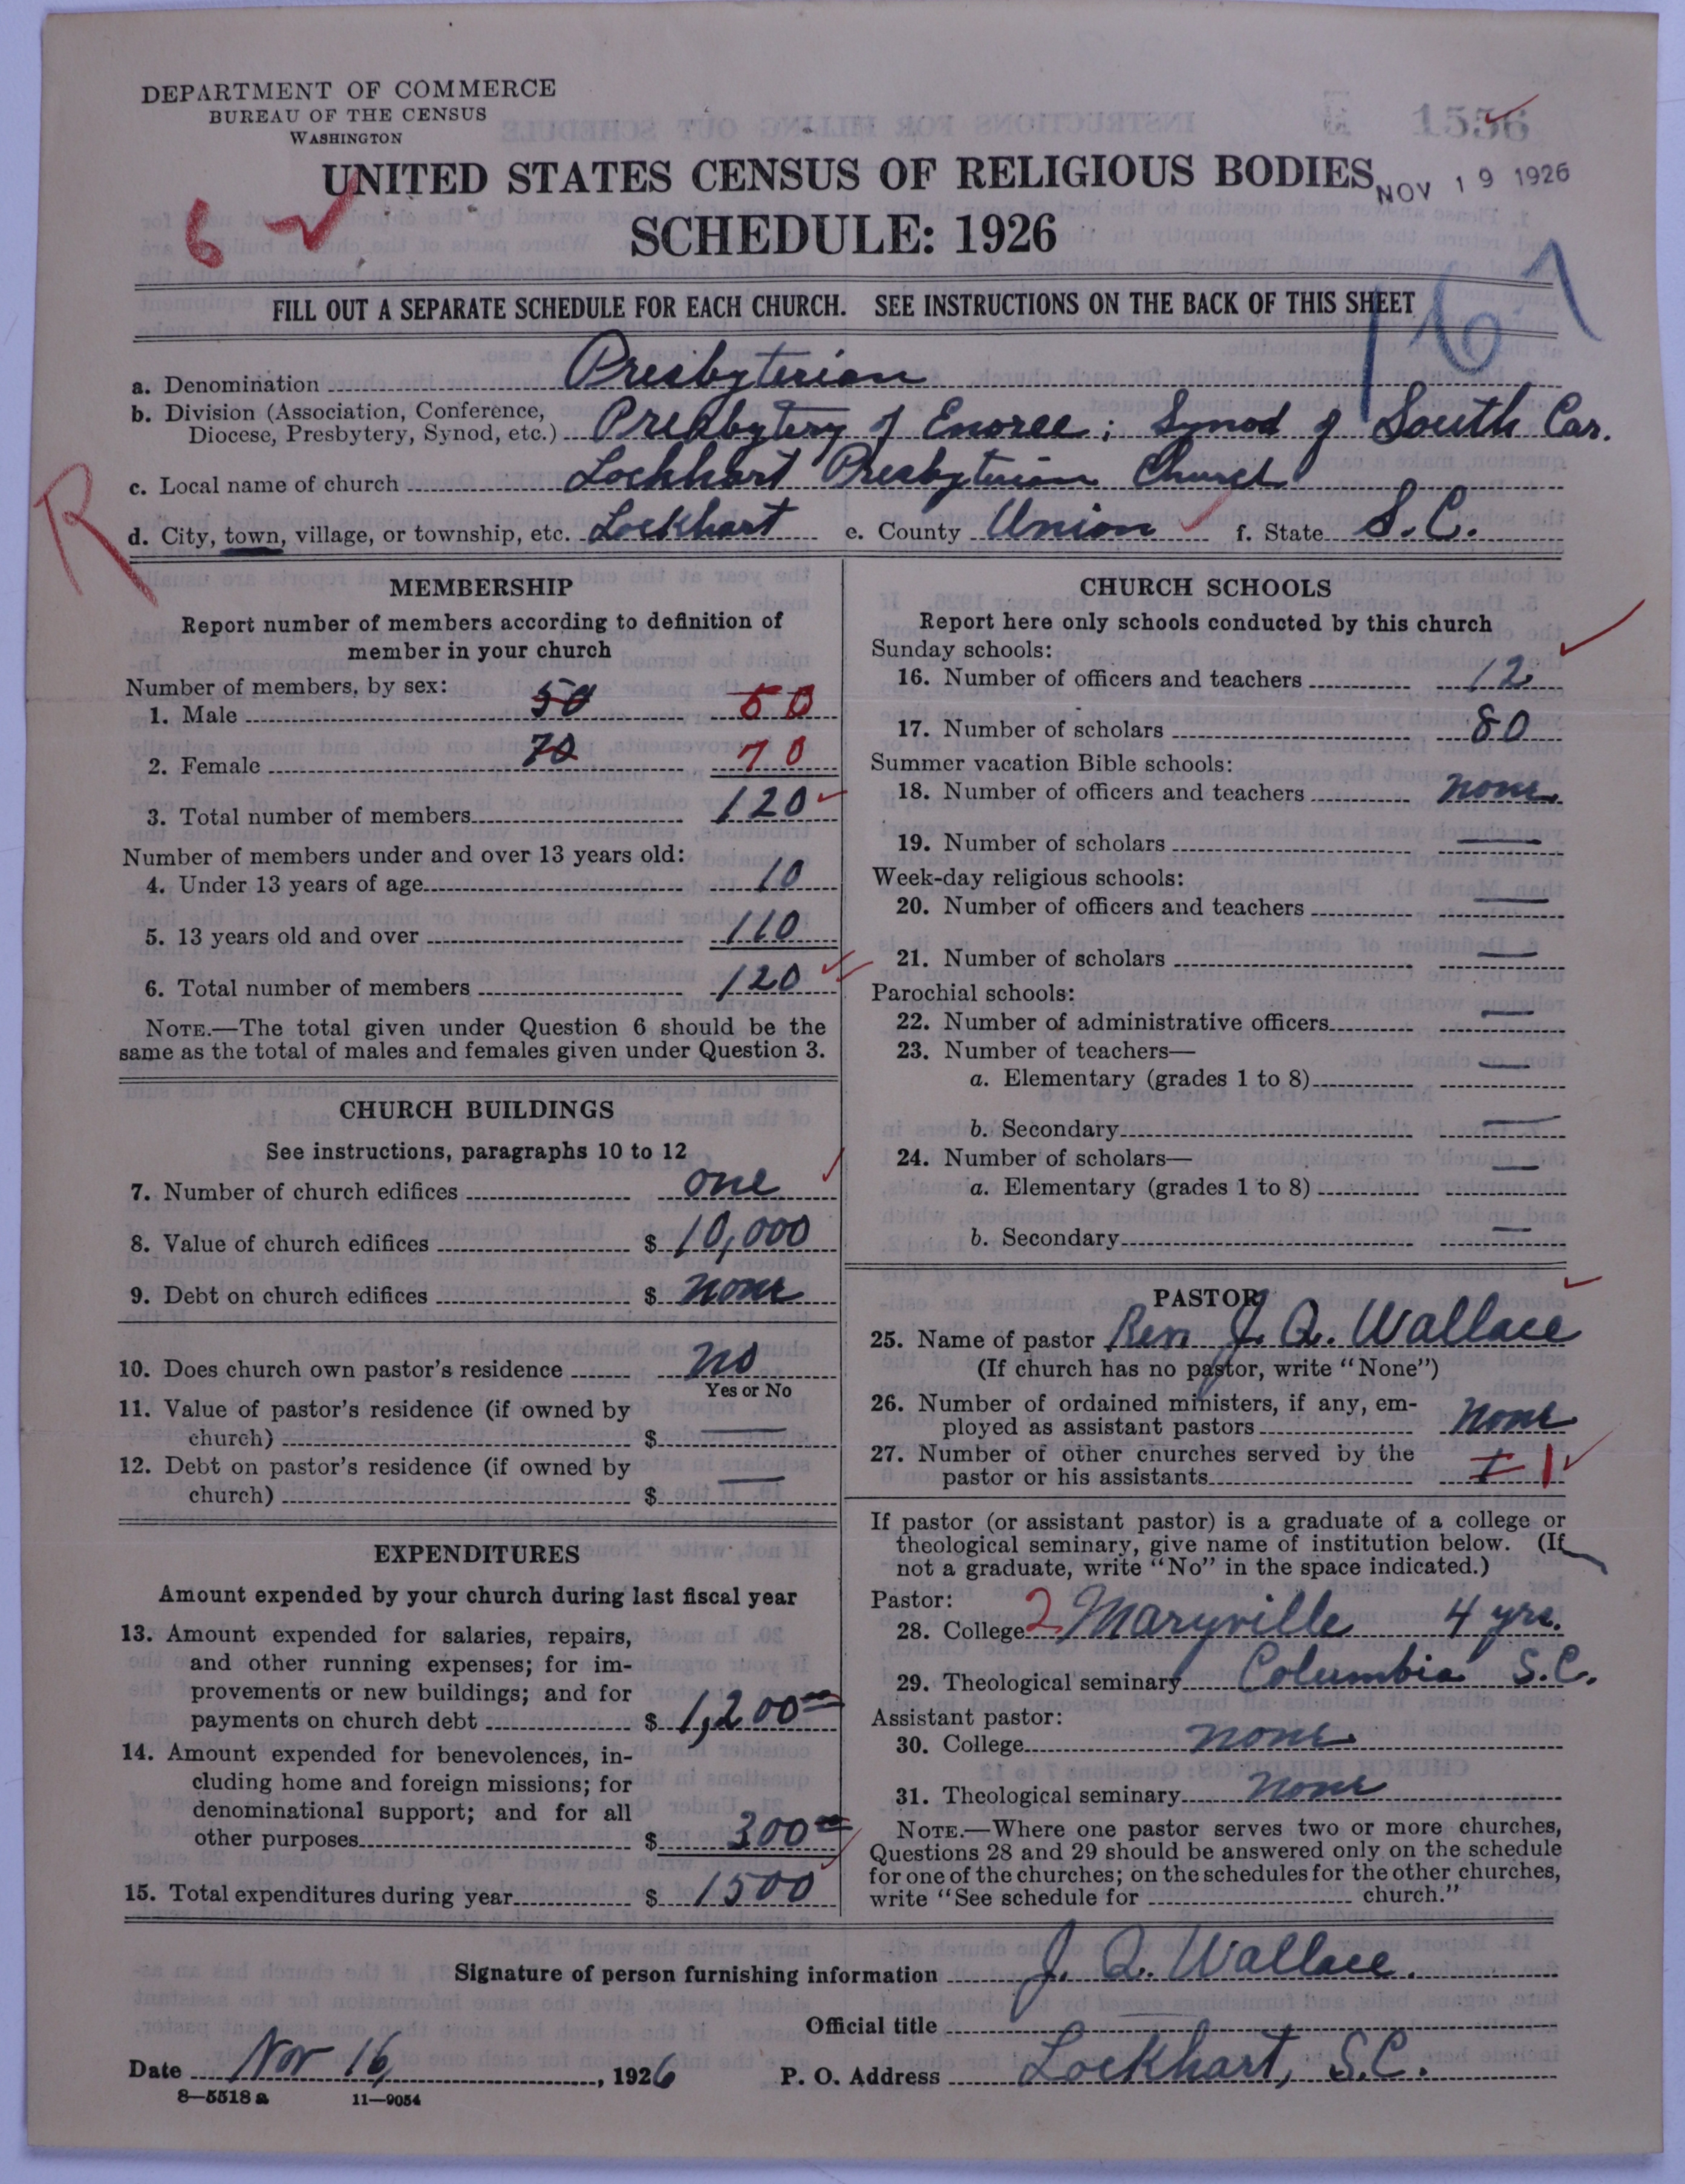 DEPARTMENT OF COMMERCE
BUREAU OF THE CENSUS
WASHINGTON
1556
UNITED STATES CENSUS OF RELIGIOUS BODIES
NOV 19 1926
6
SCHEDULE: 1926
167
FILL OUT A SEPARATE SCHEDULE FOR EACH CHURCH. SEE INSTRUCTIONS ON THE BACK OF THIS SHEET
a. Denomination Presbyterian
b. Division (Association, Conference,
Diocese, Presbytery, Synod, etc.) Presbytery of Enoree; Synod of South Car.
R
c. Local name of church Lockhart Presbyterian Church
d. City, town, village, or township, etc. Lockhart e. County Union f. State S.C.
MEMBERSHIP
Report number of members according to definition of
member in your church
Number of members, by sex:
1. Male 50 50
2. Female 70 70
3. Total number of members 120
Number of members under and over 13 years old:
4. Under 13 years of age 10
5. 13 years old and over 110
6. Total number of members 120
NOTE.—The total given under Question 6 should be the
same as the total of males and females given under Question 3.
CHURCH BUILDINGS
See instructions, paragraphs 10 to 12
7. Number of church edifices one
8. Value of church edifices $ 10,000
9. Debt on church edifices $ none
10. Does church own pastor's residence no
Yes or No
11. Value of pastor's residence (if owned by
church) $ —
12. Debt on pastor's residence (if owned by
church) $ —
EXPENDITURES
Amount expended by your church during last fiscal year
13. Amount expended for salaries, repairs,
and other running expenses; for im-
provements or new buildings; and for
payments on church debt $ 1,200 00
14. Amount expended for benevolences, in-
cluding home and foreign missions; for
denominational support; and for all
other purposes $ 300 00
15. Total expenditures during year $ 1500
CHURCH SCHOOLS
Report here only schools conducted by this church
Sunday schools:
16. Number of officers and teachers 12
17. Number of scholars 80
Summer vacation Bible schools:
18. Number of officers and teachers none
19. Number of scholars —
Week-day religious schools:
20. Number of officers and teachers —
21. Number of scholars —
Parochial schools:
22. Number of administrative officers —
23. Number of teachers—
a. Elementary (grades 1 to 8) —
b. Secondary —
24. Number of scholars—
a. Elementary (grades 1 to 8) —
b. Secondary —
PASTOR
25. Name of pastor Rev J. Q. Wallace
(If church has no pastor, write "None")
26. Number of ordained ministers, if any, em-
ployed as assistant pastors none
27. Number of other churches served by the
pastor or his assistants 1 1
If pastor (or assistant pastor) is a graduate of a college or
theological seminary, give name of institution below. (If
not a graduate, write "No" in the space indicated.)
Pastor:
28. College 2 Maryville 4 yrs.
29. Theological seminary Columbia S.C.
Assistant pastor:
30. College none
31. Theological seminary none
NOTE.—Where one pastor serves two or more churches,
Questions 28 and 29 should be answered only on the schedule
for one of the churches; on the schedules for the other churches,
write "See schedule for ---------- church."
Signature of person furnishing information J. Q. Wallace.
Official title
Date Nov 16, 1926 P. O. Address Lockhart, S.C.
8—5518 a 11—9054